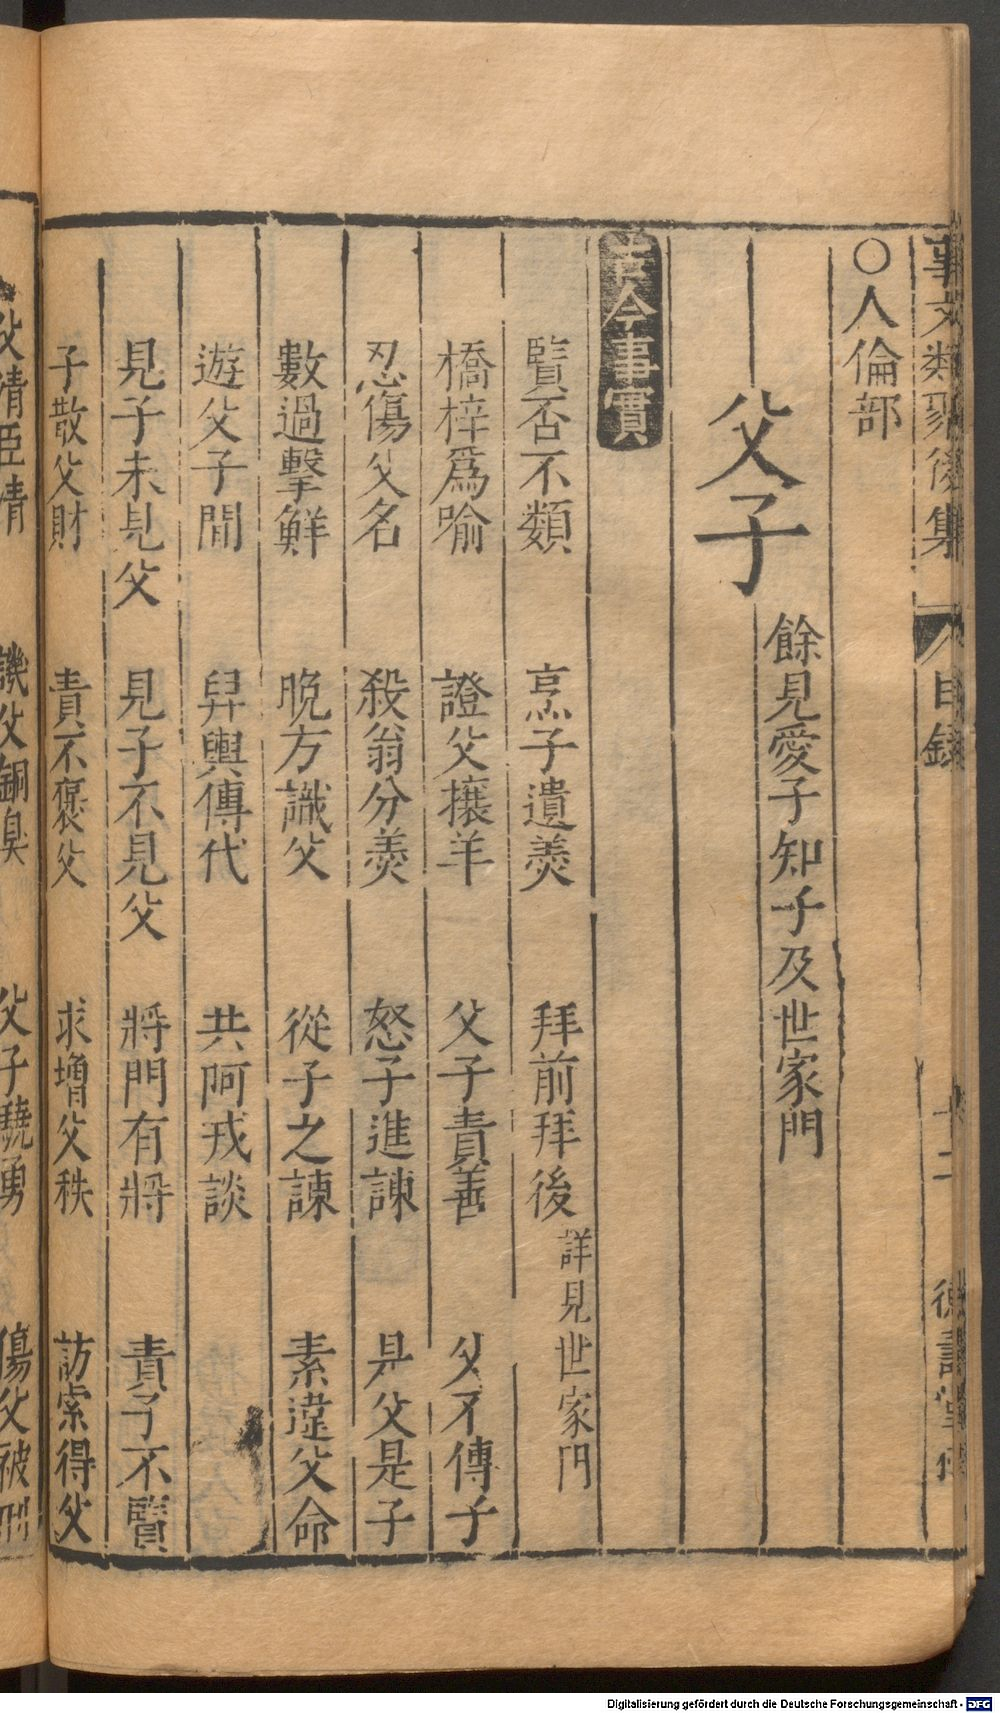 事文類聚後集 目錄 十二
〇人倫部
父子 餘見愛子知子及世家門
古今事實
賢否不類 烹子遺羹 拜前拜後 詳見世家門
橋梓爲喻 證父攘羊 父子責善 父不傳子
忍傷父名 殺翁分羹 怒子進諫 是父是子
數過擊鮮 晚方識父 從子之諫 素違父命
遊父子間 舁輿傳代 共阿戎談
見子未見父 見子不見父 將門有將 責子不賢
子散父財 責不褒父 求增父秩 訪索得父
父清臣清 譏父銅臭 父子驍勇 傷父被刑
Digitalisierung gefördert durch die Deutsche Forschungsgemeinschaft - DFG